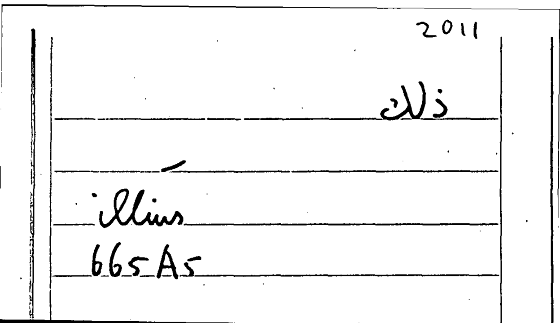 2011
ذلك
illius
665A5